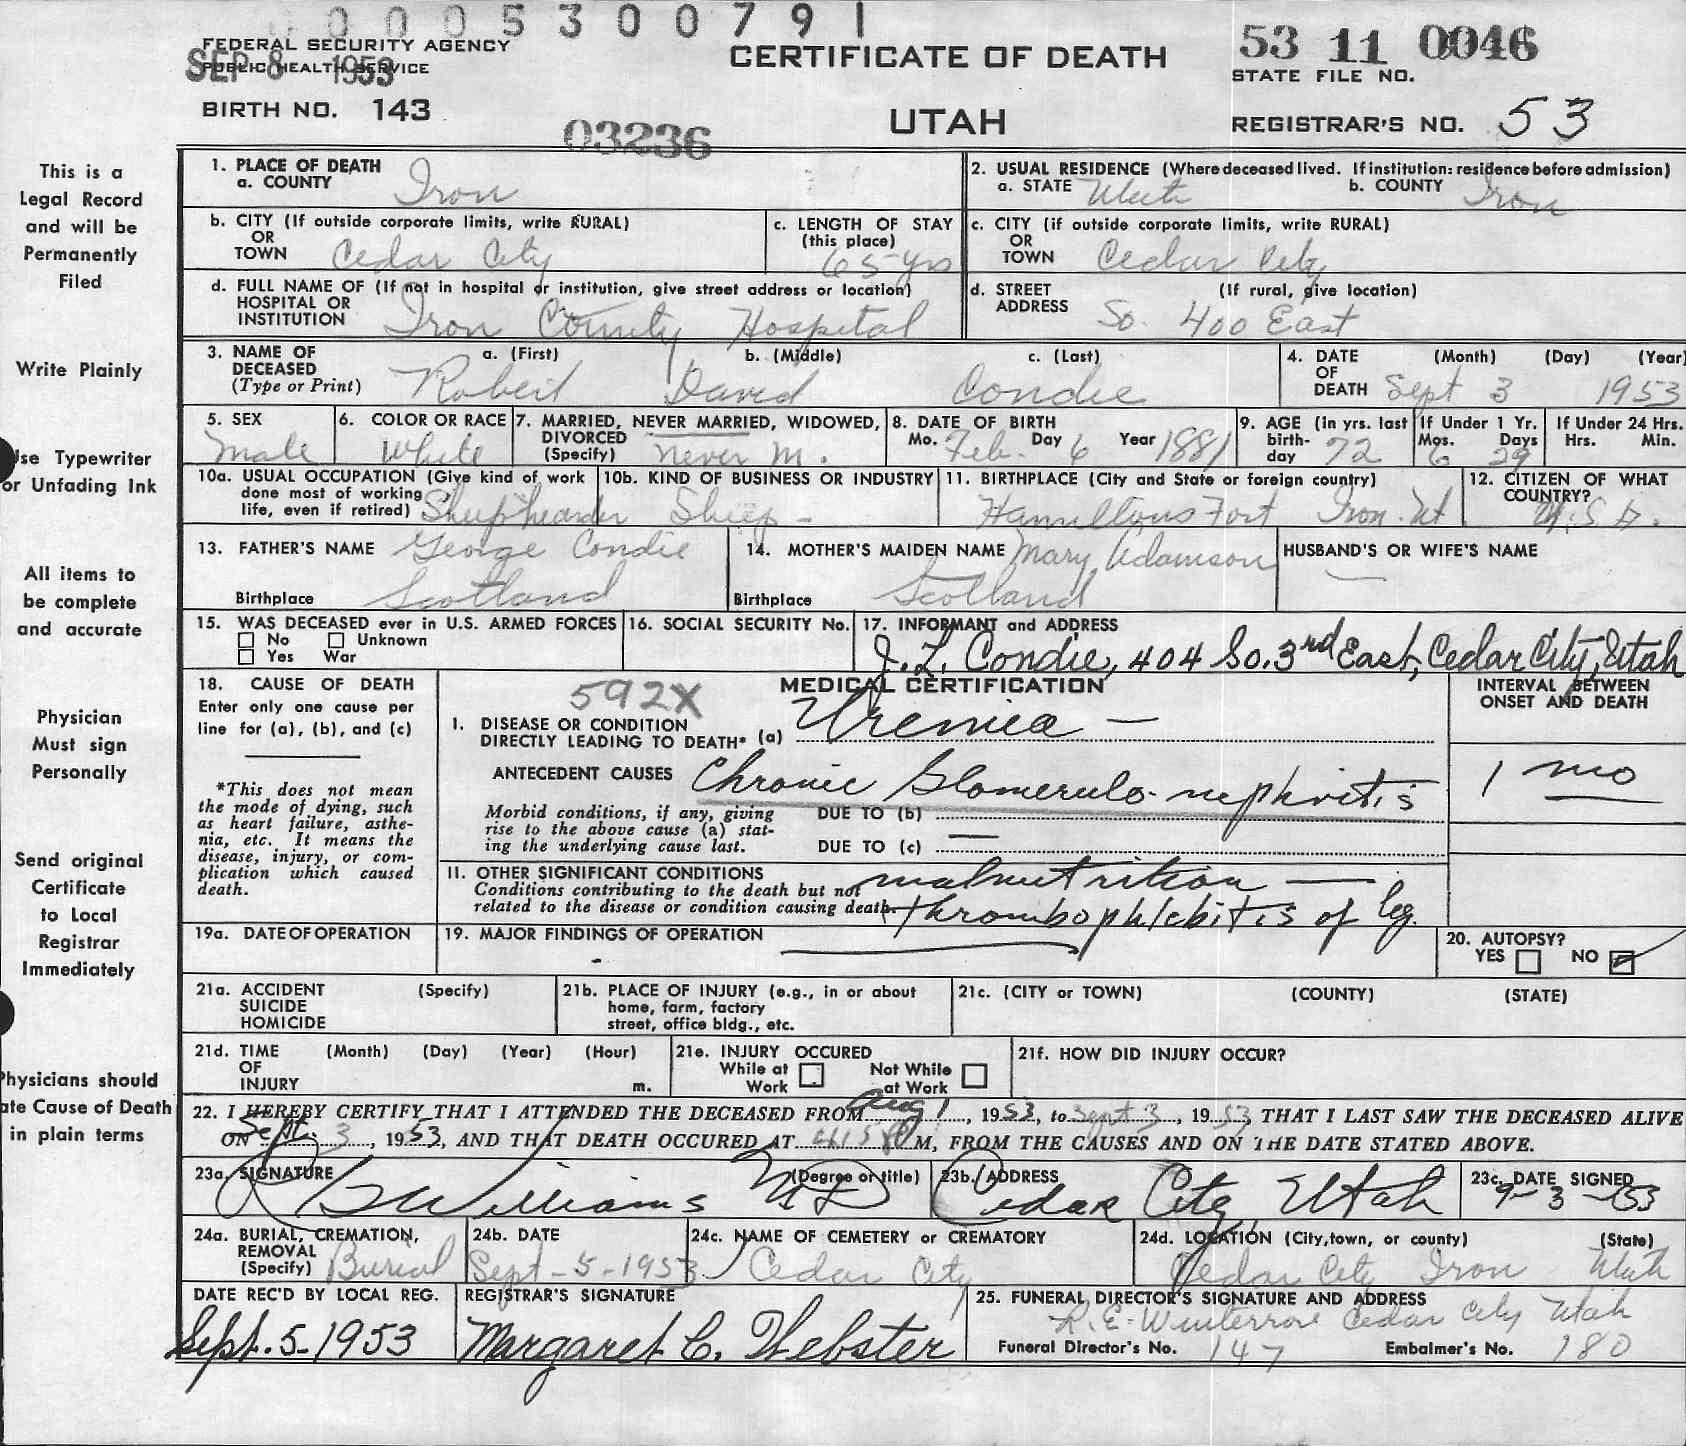 0005300791
FEDERAL SECURITY AGENCY
PUBLIC HEALTH SERVICE
SEP 8 1953
BIRTH NO. 143
CERTIFICATE OF DEATH
UTAH
03236
53 11 0046
STATE FILE NO.
REGISTRAR'S NO. 53
This is a
Legal Record
and will be
Permanently
Filed
Write Plainly
Use Typewriter
or Unfading Ink
All items to
be complete
and accurate
Physician
Must sign
Personally
Send original
Certificate
to Local
Registrar
Immediately
Physicians should
ate Cause of Death
in plain terms
1. PLACE OF DEATH
a. COUNTY Iron
2. USUAL RESIDENCE (Where deceased lived. If institution: residence before admission)
a. STATE Utah b. COUNTY Iron
b. CITY (If outside corporate limits, write RURAL)
OR
TOWN Cedar City
c. LENGTH OF STAY
(this place)
65 yrs
c. CITY (if outside corporate limits, write RURAL)
OR
TOWN Cedar City
d. FULL NAME OF (If not in hospital or institution, give street address or location)
HOSPITAL OR
INSTITUTION Iron County Hospital
d. STREET (If rural, give location)
ADDRESS So. 400 East
3. NAME OF DECEASED
(Type or Print)
a. (First) b. (Middle) c. (Last)
Robert David Condie
4. DATE OF DEATH (Month) (Day) (Year)
Sept 3 1953
5. SEX
Male
6. COLOR OR RACE
White
7. MARRIED, NEVER MARRIED, WIDOWED,
DIVORCED
(Specify) never m.
8. DATE OF BIRTH
Mo. Feb. Day 6 Year 1881
9. AGE (in yrs. last
birth-
day 72
If Under 1 Yr.
Mos. Days
6 29
If Under 24 Hrs.
Hrs. Min.
10a. USUAL OCCUPATION (Give kind of work
done most of working
life, even if retired) Sheephearder
10b. KIND OF BUSINESS OR INDUSTRY
Sheep -
11. BIRTHPLACE (City and State or foreign country)
Hamiltons Fort Iron. Ut
12. CITIZEN OF WHAT
COUNTRY?
U.S.A.
13. FATHER'S NAME George Condie
Birthplace Scotland
14. MOTHER'S MAIDEN NAME Mary Adamson
Birthplace Scotland
HUSBAND'S OR WIFE'S NAME
—
15. WAS DECEASED ever in U.S. ARMED FORCES
No Unknown
Yes War
16. SOCIAL SECURITY No.
17. INFORMANT and ADDRESS
J. L. Condie, 404 So. 3rd East, Cedar City, Utah
18. CAUSE OF DEATH
Enter only one cause per
line for (a), (b), and (c)
*This does not mean
the mode of dying, such
as heart failure, asthe-
nia, etc. It means the
disease, injury, or com-
plication which caused
death.
592X
MEDICAL CERTIFICATION
I. DISEASE OR CONDITION
DIRECTLY LEADING TO DEATH* (a) Uremia —
ANTECEDENT CAUSES Chronic Glomerulo-nephritis
Morbid conditions, if any, giving
rise to the above cause (a) stat-
ing the underlying cause last.
DUE TO (b)
DUE TO (c) —
INTERVAL BETWEEN
ONSET AND DEATH
1 mo
11. OTHER SIGNIFICANT CONDITIONS
Conditions contributing to the death but not
related to the disease or condition causing death.
malnutrition —
thrombophlebitis of leg.
19a. DATE OF OPERATION
19. MAJOR FINDINGS OF OPERATION
20. AUTOPSY?
YES NO
21a. ACCIDENT (Specify)
SUICIDE
HOMICIDE
21b. PLACE OF INJURY (e.g., in or about
home, farm, factory
street, office bldg., etc.
21c. (CITY or TOWN) (COUNTY) (STATE)
21d. TIME (Month) (Day) (Year) (Hour)
OF
INJURY m.
21e. INJURY OCCURED
While at Work Not While at Work
21f. HOW DID INJURY OCCUR?
22. I HEREBY CERTIFY THAT I ATTENDED THE DECEASED FROM Aug 1, 1953, to Sept 3, 1953, THAT I LAST SAW THE DECEASED ALIVE
ON Sept. 3, 1953, AND THAT DEATH OCCURED AT M, FROM THE CAUSES AND ON THE DATE STATED ABOVE.
23a. SIGNATURE (Degree or title)
Williams MD
23b. ADDRESS
Cedar City Utah
23c. DATE SIGNED
9-3-53
24a. BURIAL, CREMATION,
REMOVAL
(Specify) Burial
24b. DATE
Sept-5-1953
24c. NAME OF CEMETERY OR CREMATORY
Cedar City
24d. LOCATION (City,town, or county) (State)
Cedar City Iron Utah
DATE REC'D BY LOCAL REG.
Sept. 5-1953
REGISTRAR'S SIGNATURE
Margaret C. Webster
25. FUNERAL DIRECTOR'S SIGNATURE AND ADDRESS
R.E. Winterrose Cedar City Utah
Funeral Director's No. 147 Embalmer's No. 180